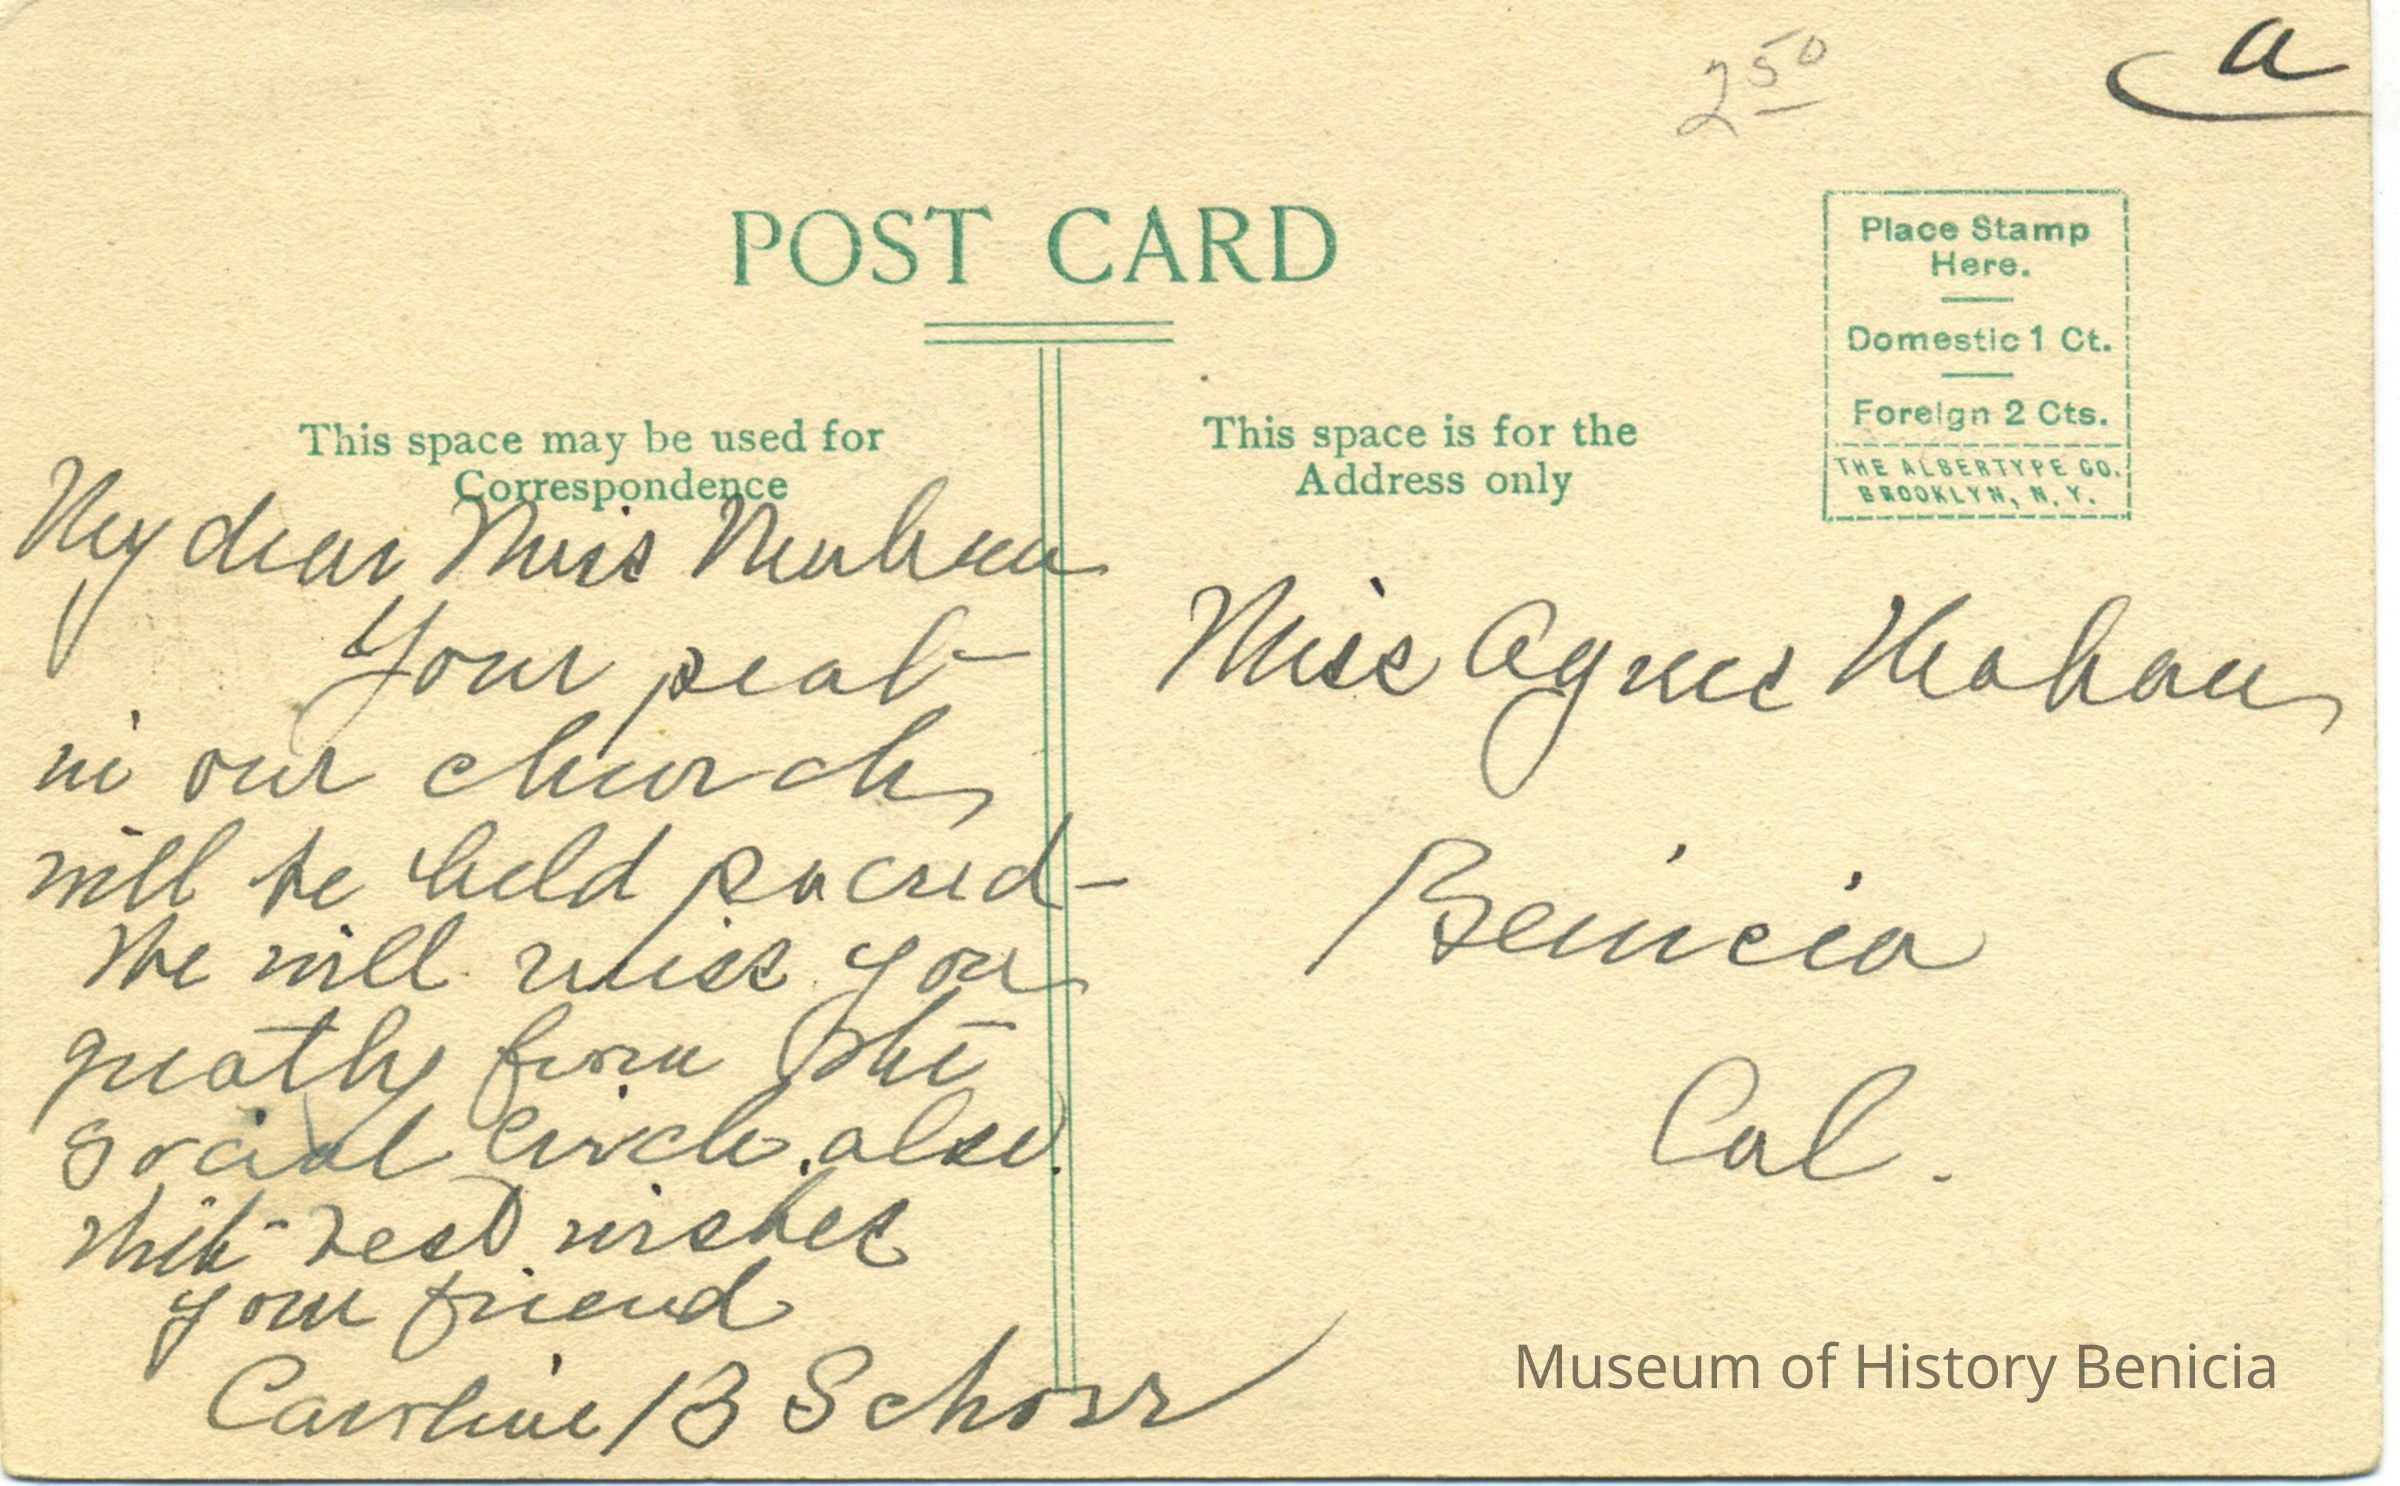 a
2 50
POST CARD
Place Stamp
Here.
Domestic 1 Ct.
Foreign 2 Cts.
THE ALBERTYPE CO.
BROOKLYN, N. Y.
This space may be used for
Correspondence
This space is for the
Address only
My dear Miss
Your seat
in our church
will be held sacred –
We will miss you
greatly from the
social circle, also.
With best wishes
your friend
Caroline B Schorr
Miss Agnes
Benicia
Cal.
Museum of History Benicia